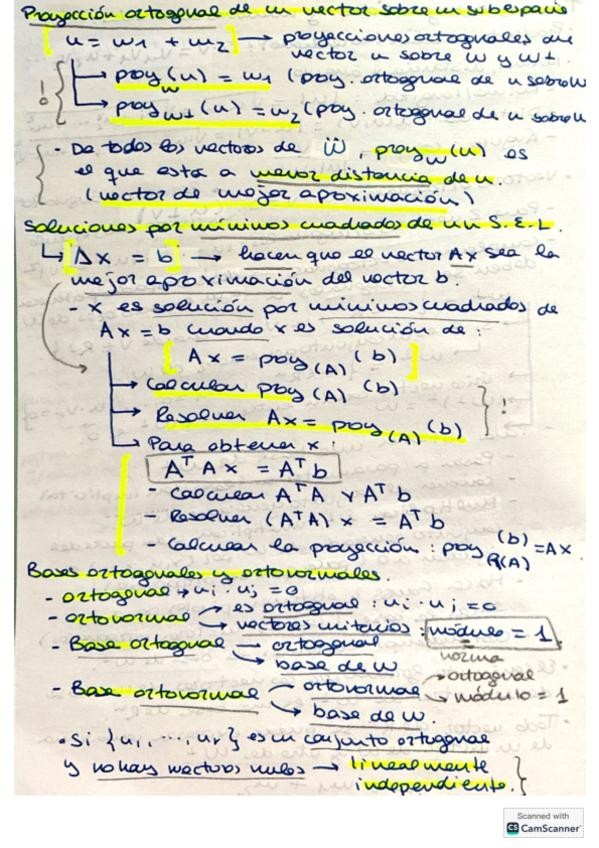 Proyección ortogonal de un vector sobre un subespacio
[u = w1 + w2] → proyecciones ortogonales de
vector u sobre W y W⊥
! → proy_W (u) = w1 (proy. ortogonal de u sobre W
→ proy_W⊥ (u) = w2 (proy. ortogonal de u sobre W
- De todos los vectores de W, proy_W (u) es
el que esta a menor distancia de u.
(vector de mejor aproximación)
Soluciones por mínimos cuadrados de un S.E.L.
↳ [Ax = b] → hacen que el vector Ax sea la
mejor aproximación del vector b.
- x es solución por mínimos cuadrados de
Ax = b cuando x es solución de:
[Ax = proy_(A) (b)]
→ Calcular proy_(A) (b)
→ Resolver Ax = proy_(A) (b) } !
→ Para obtener x:
AᵀAx = Aᵀb
- Calcular AᵀA y Aᵀb
- Resolver (AᵀA)x = Aᵀb
- Calcular la proyección: proy_R(A) (b) = Ax
Bases ortogonales y ortonormales.
- ortogonal → ui · uj = 0
- ortonormal → es ortogonal: ui · uj = 0
→ vectores unitarios: módulo = 1
norma
- Base ortogonal → ortogonal
→ base de W
- Base ortonormal → ortonormal → ortogonal
→ módulo = 1
→ base de W.
• Si {u1, ..., ur} es un conjunto ortogonal
y no hay vectores nulos → linealmente
independiente.
Scanned with
CS CamScanner